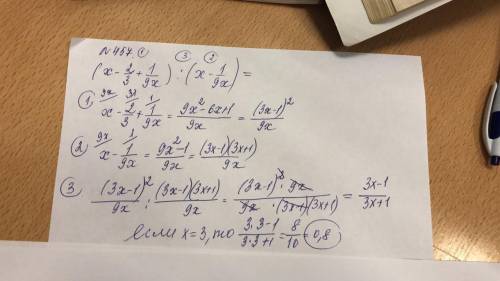 № 457. ①
③ ②
(x - 2/3 + 1/9x) : (x - 1/9x) =
1) x^{\9x} - 2^{\3x}/3 + 1^{\1}/9x = (9x² - 6x + 1)/9x = (3x-1)²/9x
2) x^{\9x} - 1^{\1}/9x = (9x² - 1)/9x = (3x-1)(3x+1)/9x
3. (3x-1)²/9x : (3x-1)(3x+1)/9x = (3x-1)² · 9x/9x · (3x-1)(3x+1) = 3x-1/3x+1
если x = 3, то 3·3-1/3·3+1 = 8/10 = 0,8